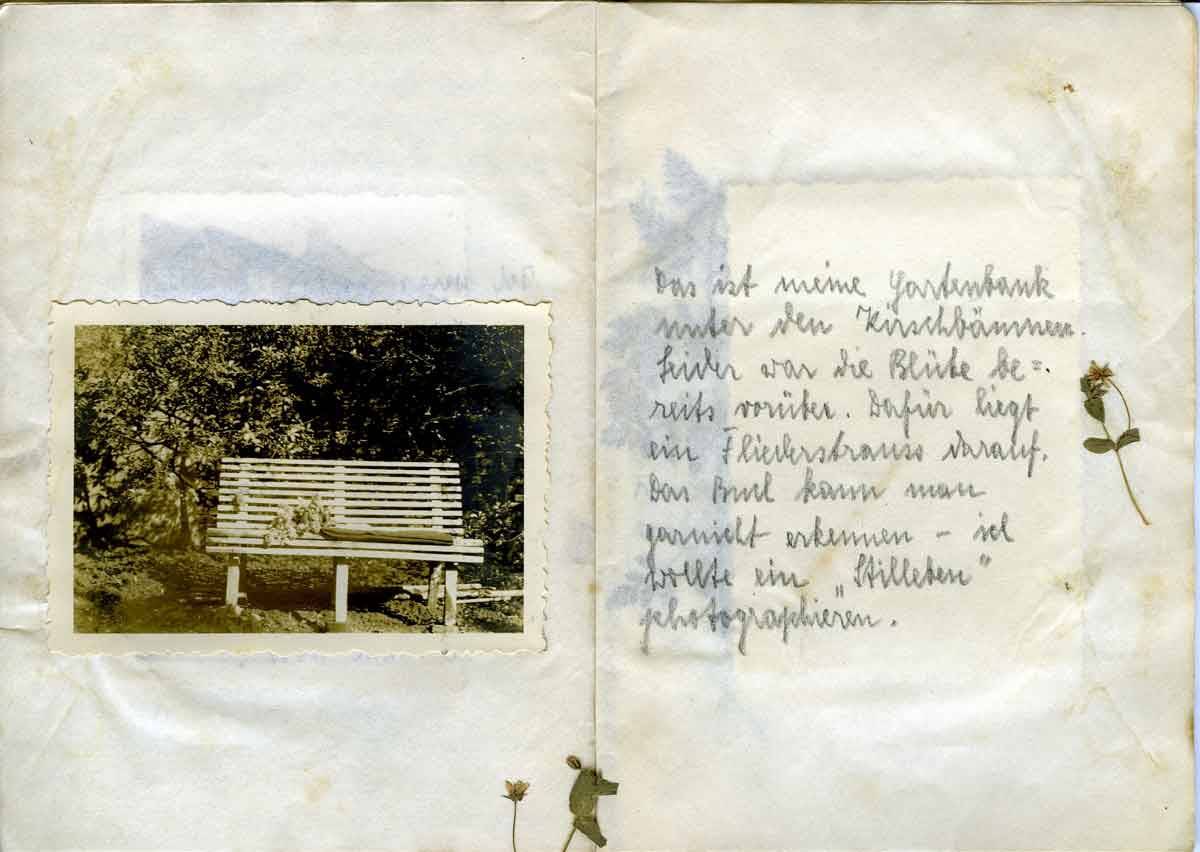 Das ist meine Gartenbank
unter den Kirschbäumen.
Leider war die Blüte be=
reits vorüber. Dafür liegt
ein Fliederstrauss darauf.
Das Buch kann man
garnicht erkennen – ich
wollte ein „Stilleben"
photographieren.